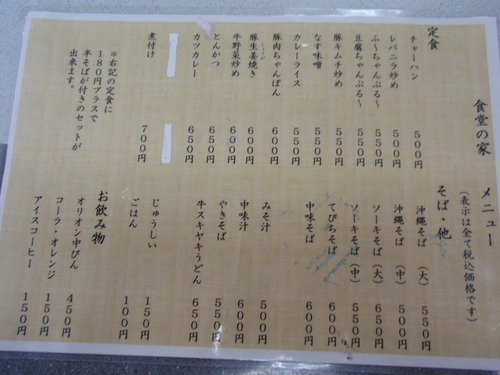 食堂の家 メニュー
(表示は全て税込価格です)
定食
チャーハン 500円
レバニラ炒め 500円
ふ〜ちゃんぷる〜 550円
豆腐ちゃんぷる〜 550円
豚キムチ炒め 550円
なす味噌 550円
カレーライス 550円
豚肉ちゃんぽん 600円
豚生姜焼き 600円
牛野菜炒め 600円
とんかつ 650円
カツカレー 650円
円
煮付け 700円
※右記の定食に
180円プラスで
半そばが付きのセットが
出来ます。
そば・他
沖縄そば (大) 550円
沖縄そば (中) 500円
ソーキそば (大) 650円
ソーキそば (中) 550円
てびちそば 600円
中味そば 600円
みそ汁 500円
中味汁 600円
やきそば 550円
牛スキヤキうどん 650円
じゅうしい 150円
ごはん 100円
お飲み物
オリオン中びん 450円
コーラ・オレンジ 150円
アイスコーヒー 150円